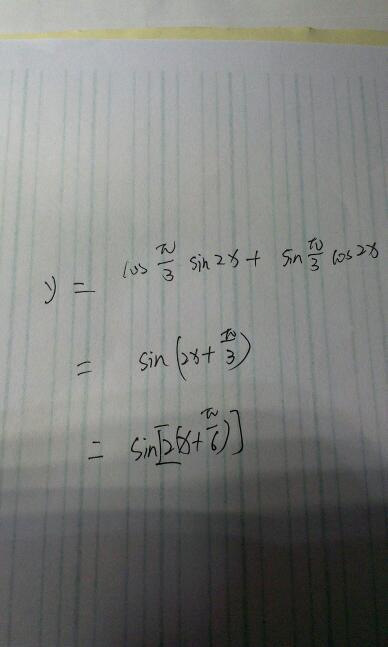 y = cos π/3 sin 2x + sin π/3 cos 2x
= sin (2x + π/3)
= sin[2(x + π/6)]